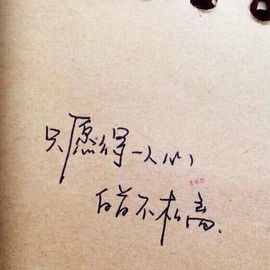 只愿得一人心,
白首不相离.